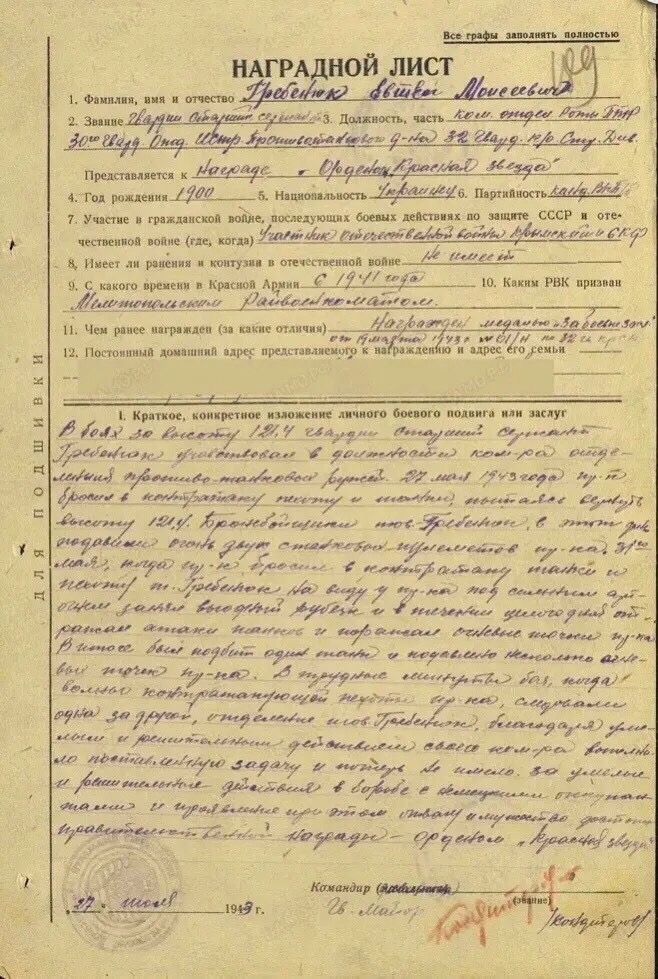 Все графы заполнять полностью
НАГРАДНОЙ ЛИСТ
1. Фамилия, имя и отчество Гребенюк Моисеевич
2. Звание Гвардии Старший сержант 3. Должность, часть ком. отдел Роты ПТР
30го Гвард. Отд. Истр. Противотанкового д-на 32 Гвард. Стр. Див.
Представляется к Награде "Орденом Красная звезда"
4. Год рождения 1900 5. Национальность Украинец 6. Партийность канд. ВКП/б
7. Участие в гражданской войне, последующих боевых действиях по защите СССР и оте-
чественной войне (где, когда) Участник отечественной войны Крымский и СКФ
8. Имеет ли ранения и контузии в отечественной войне не имеет
9. С какого времени в Красной Армии с 1941 года 10. Каким РВК призван
Мелитопольским Райвоенкоматом.
11. Чем ранее награжден (за какие отличия) Награжден медалью "За боевые
от 19 марта 1943г.
12. Постоянный домашний адрес представляемого к награждению и адрес его семьи
I. Краткое, конкретное изложение личного боевого подвига или заслуг
В боях за высоту 121,4 гвардии старший сержант
Гребенюк участвовал в должности ком-ра отде-
ления противо-танковых ружей. 27 мая 1943 года пр-к
бросил в контратаку пехоту и танки, пытаясь вернуть
высоту 121,4. Бронебойщики тов. Гребенюк, в этот день
подавили огонь двух станковых пулеметов пр-ка. 31го
мая, когда пр-к бросил в контратаку танки и
пехоту т. Гребенюк на виду у пр-ка под сильным арт-
огнем занял выгодный рубеж и в течении целого дня от-
ражал атаки танков и поражал огневые точки пр-ка
В итоге был подбит один танк и подавлено несколько огне-
вых точек пр-ка. В трудные минуты боя, когда
волны контратакующей пехоты пр-ка, следовали
одна за другой, отделение тов. Гребенюк, благодаря уме-
лым и решительным действиям своего ком-ра выполни-
ло поставленную задачу и потерь не имело. За умелые
и решительные действия в борьбе с немецкими оккупан-
тами и проявленные при этом отвагу и мужество достоин
правительственной награды - орденом "Красная звезда"
ДЛЯ ПОДШИВКИ
Командир
27 июля 1943 г. Гв. Майор (звание)
/Кондитеров/